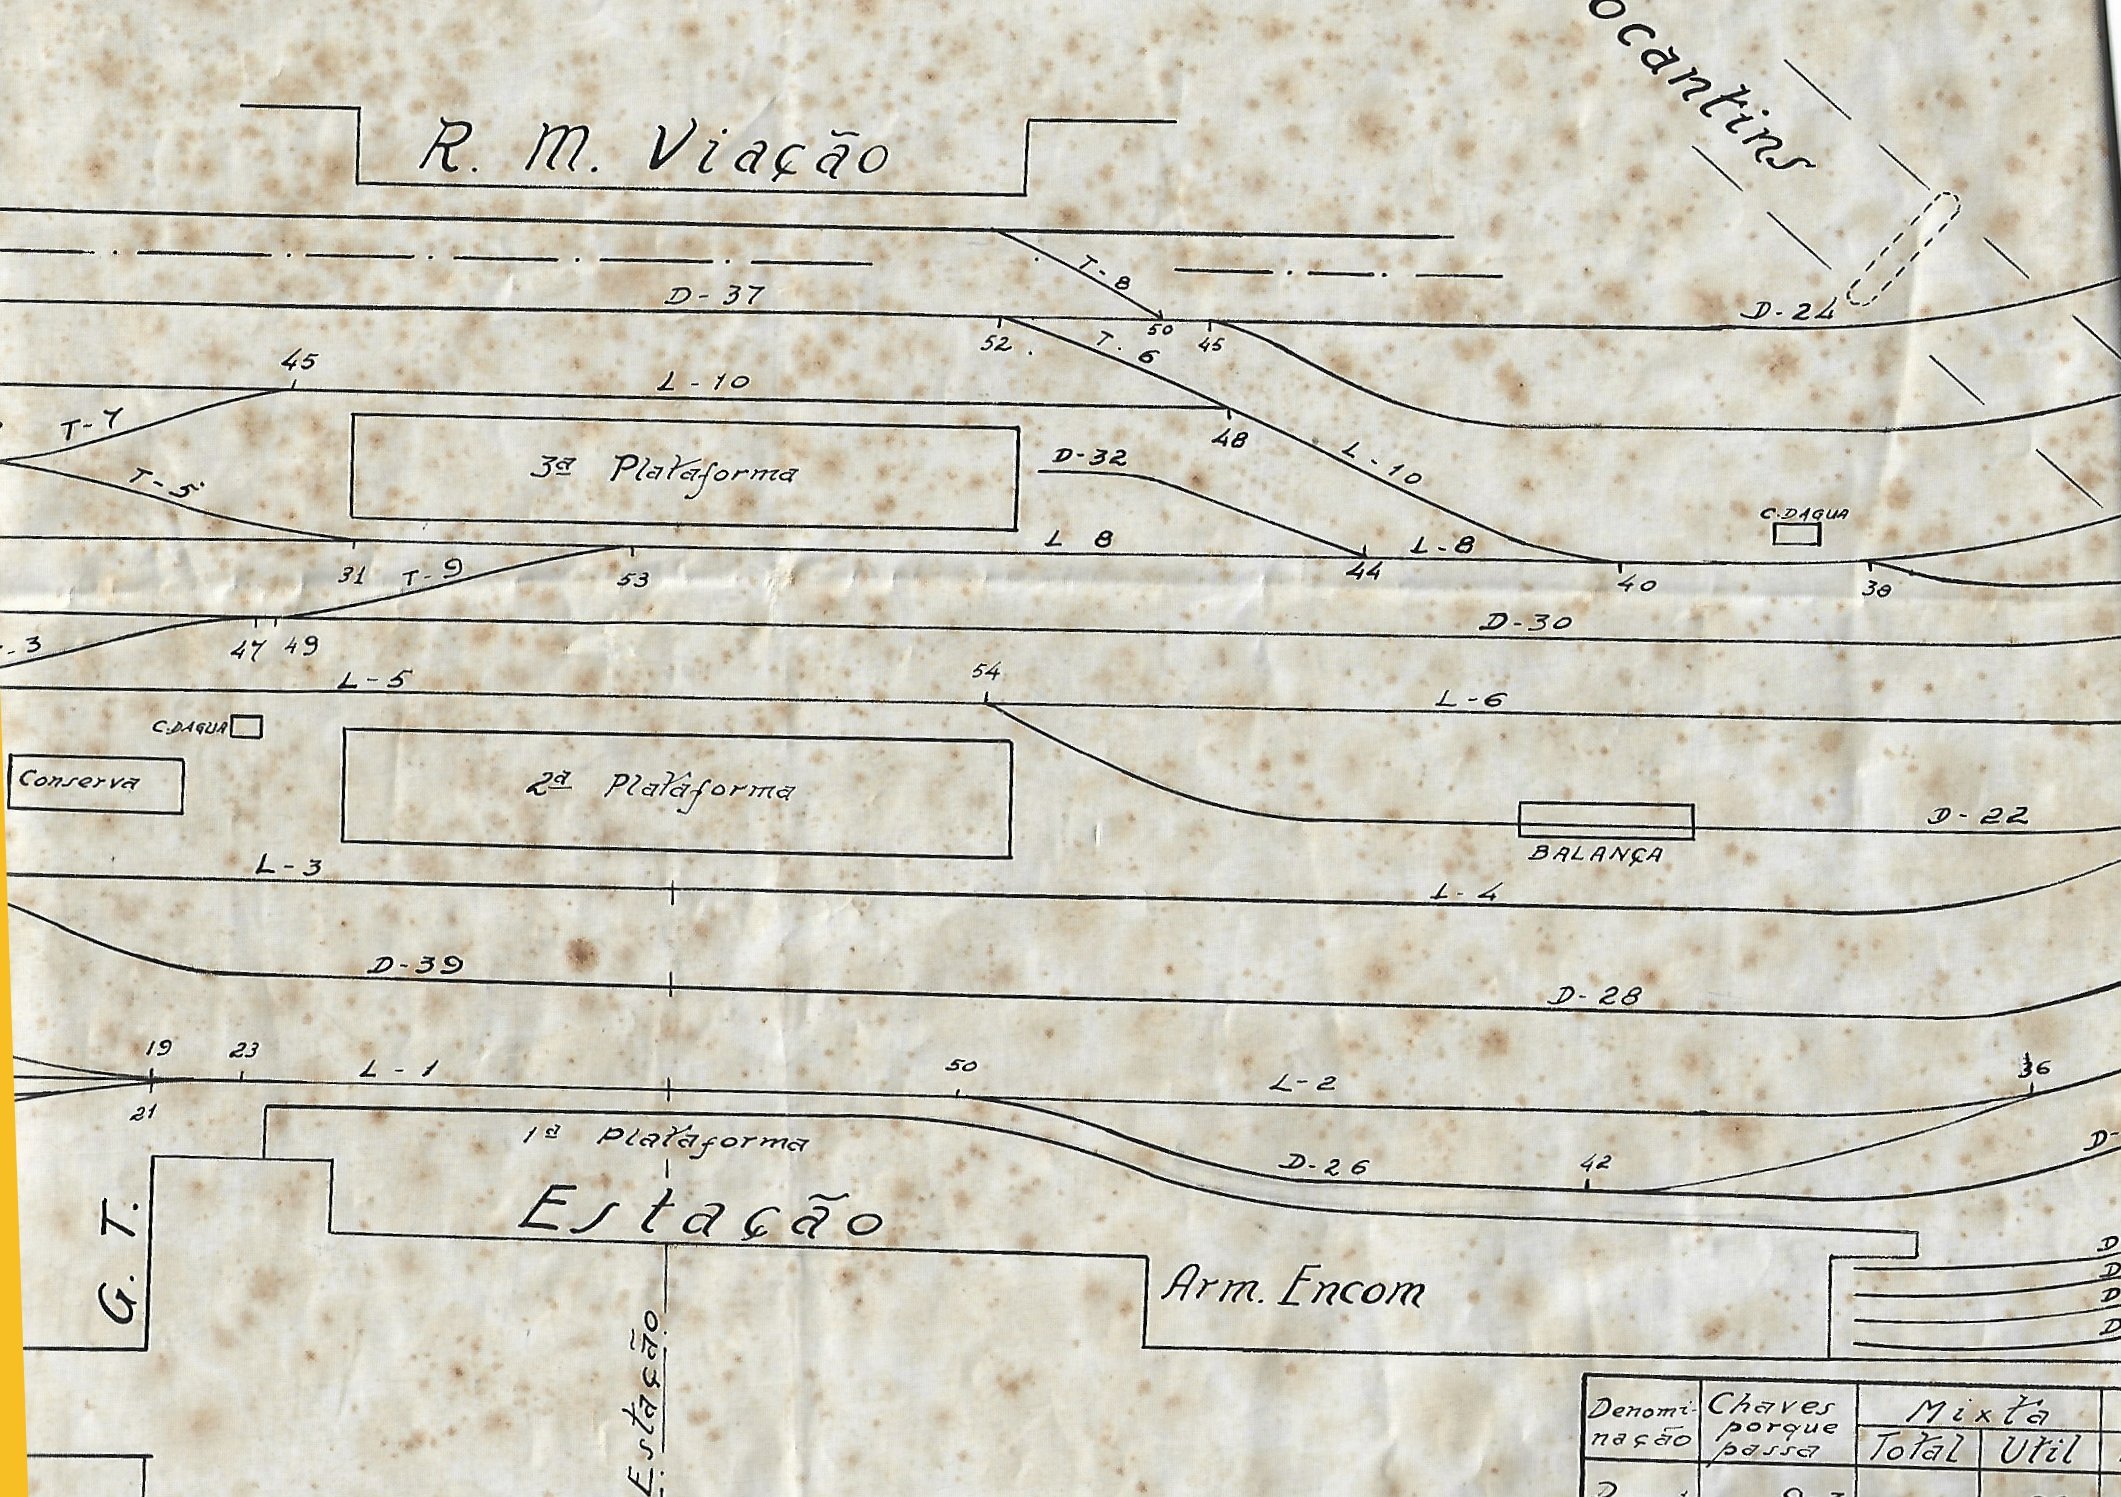 ocantins
R. M. Viação
T-8
D-37
D-24
50
52
T. 6
45
45
L-10
T-7
48
3ª Plataforma
D-32
L-10
T-5
C.DAGUA
L 8
L-8
31
T-9
53
44
40
38
D-30
3
47 49
L-5
54
L-6
C.DAGUA
Conserva
2ª Plataforma
D-22
BALANÇA
L-3
L-4
D-39
D-28
19 23
L-1
50
L-2
36
21
1ª Plataforma
D-26
42
D-
Estação
G. T.
Arm. Encom
D
D
D
D
Estação
Denomi-
nação
Chaves
porque
passa
Mixta
Total
Util